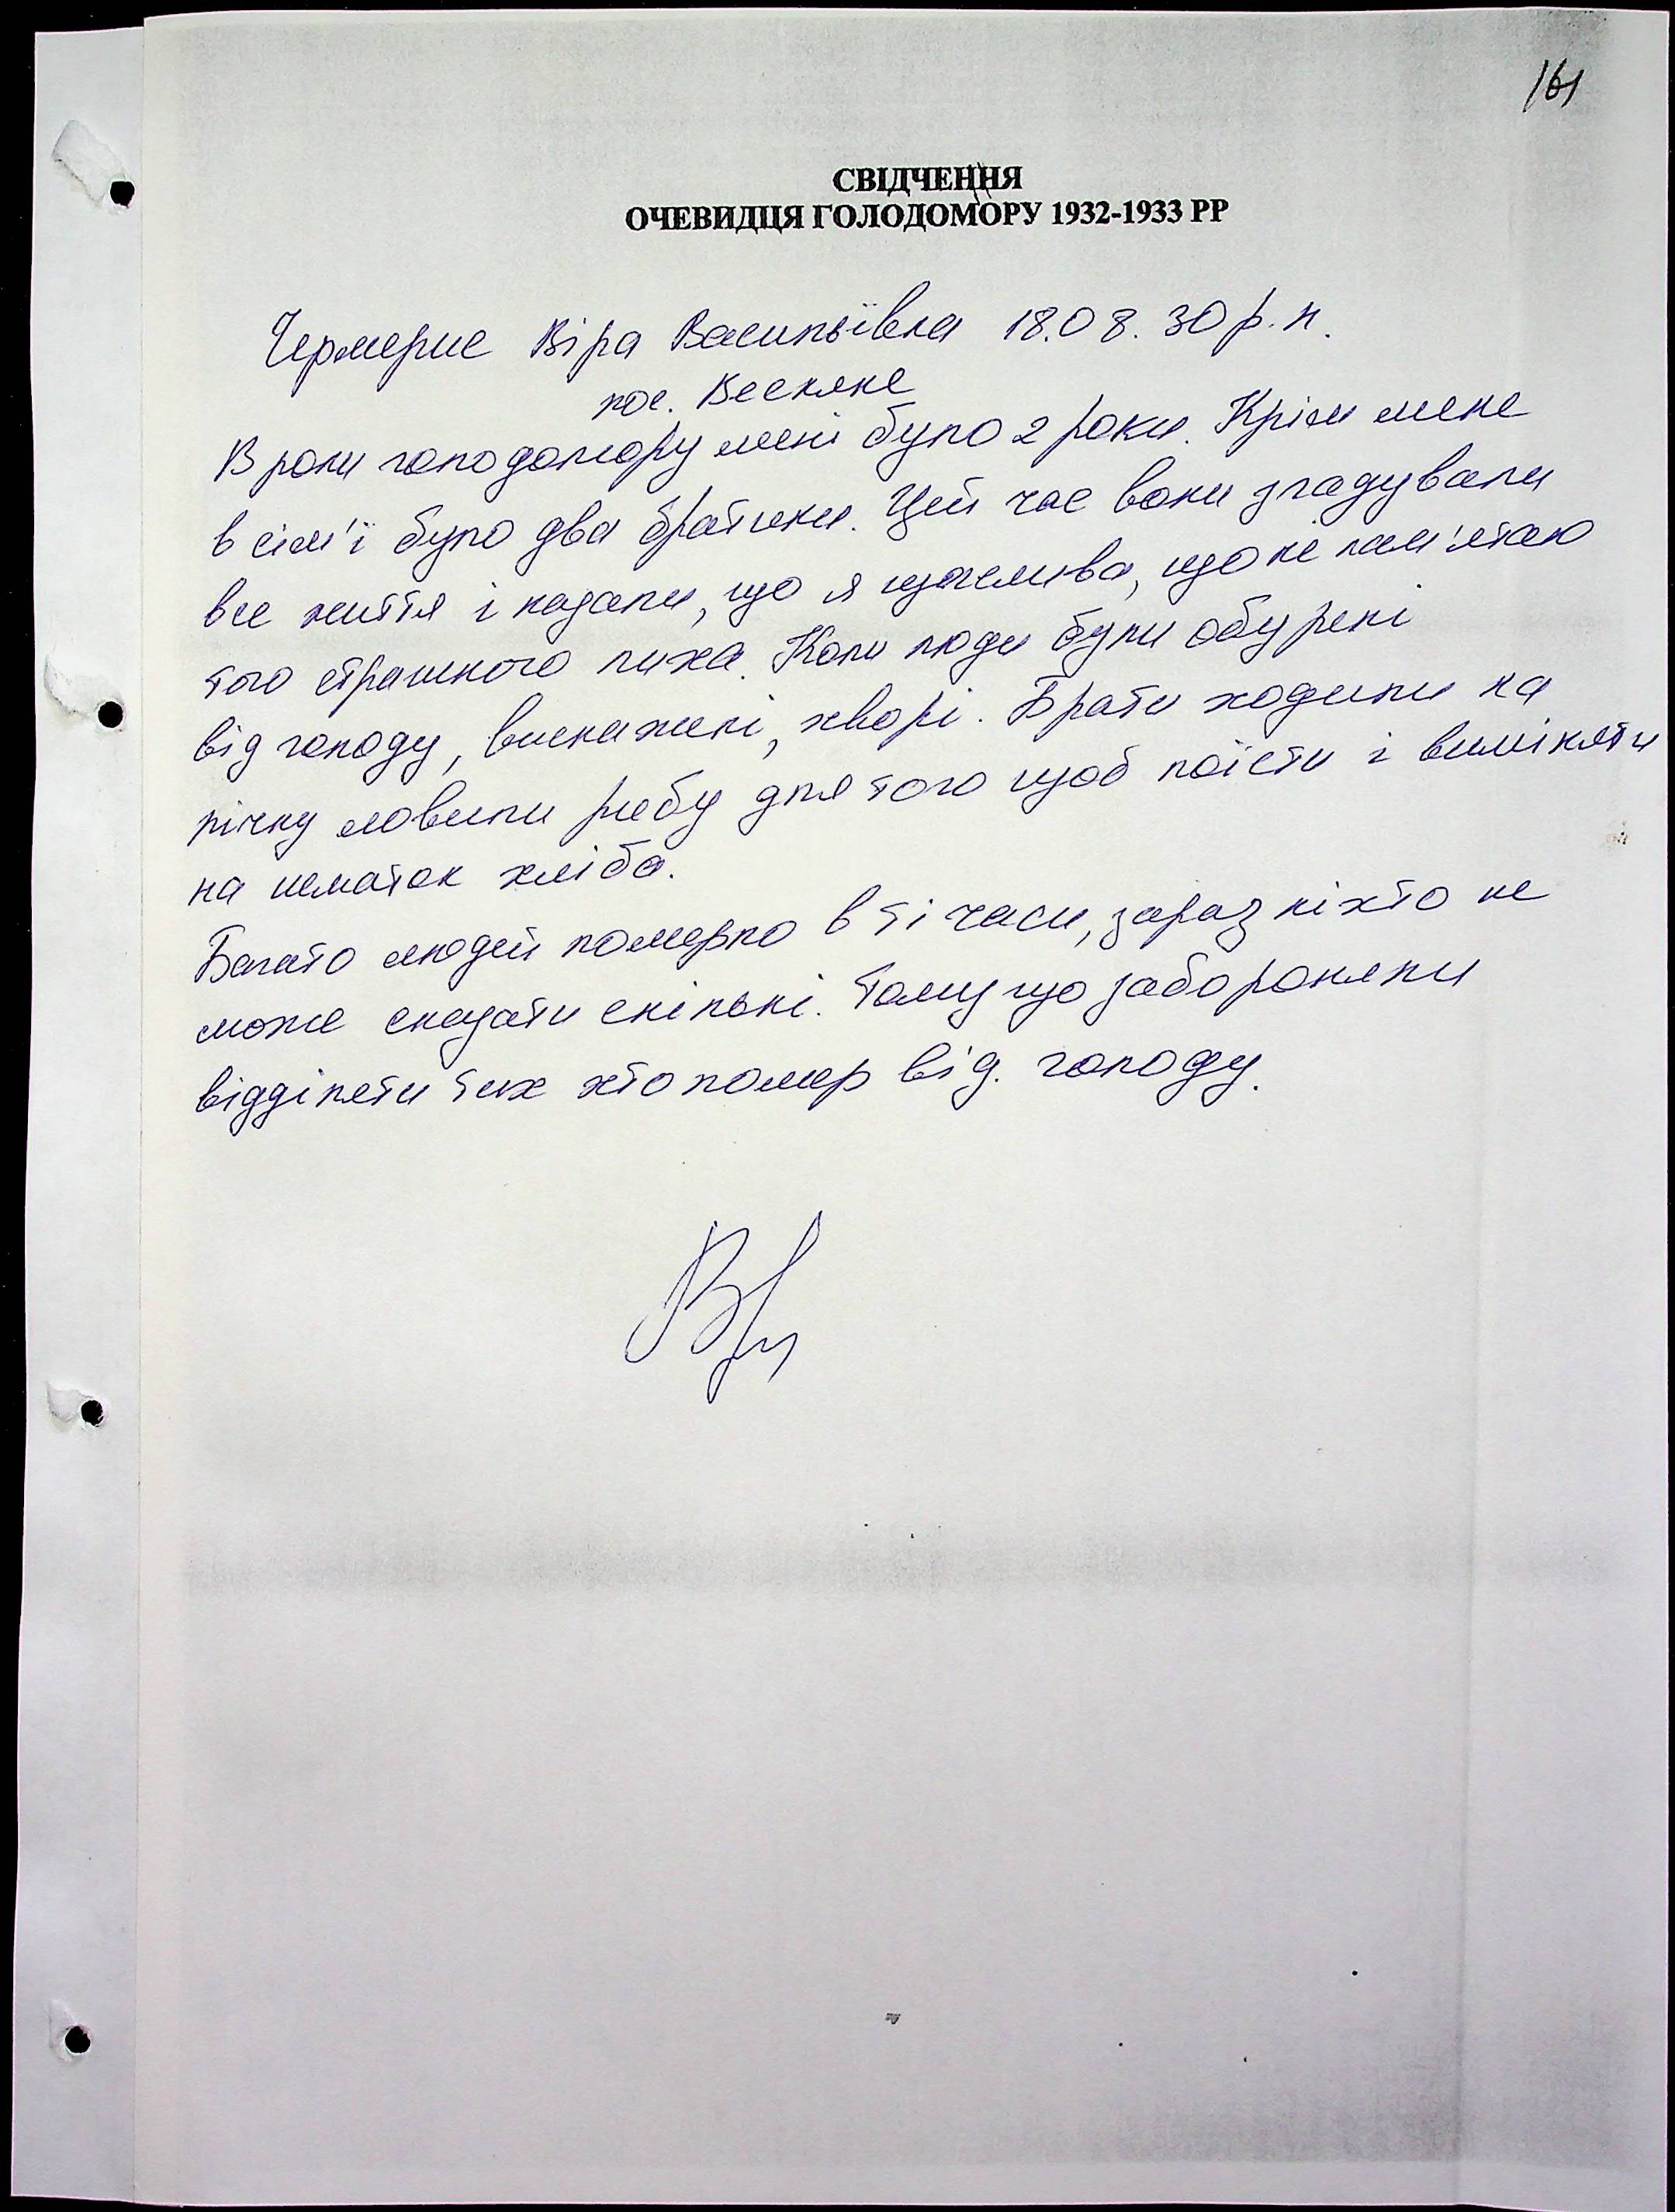 161
СВІДЧЕННЯ
ОЧЕВИДЦЯ ГОЛОДОМОРУ 1932-1933 РР
Віра Васильївна 18.08.30 р.н.
пос. Весняне
В роки голодомору мені було 2 роки. Крім мене
в сім'ї було два братики. Цей час вони згадували
все життя і казали, що я щаслива, що не пам'ятаю
того страшного лиха. Коли люди були обурені
від голоду, виснажені, хворі. Брати ходили на
річку ловили рибу для того щоб поїсти і виміняти
на шматок хліба.
Багато людей померло в ті часи, зараз ніхто не
може сказати скількі. Тому що забороняли
відділяти тих хто помер від. голоду.